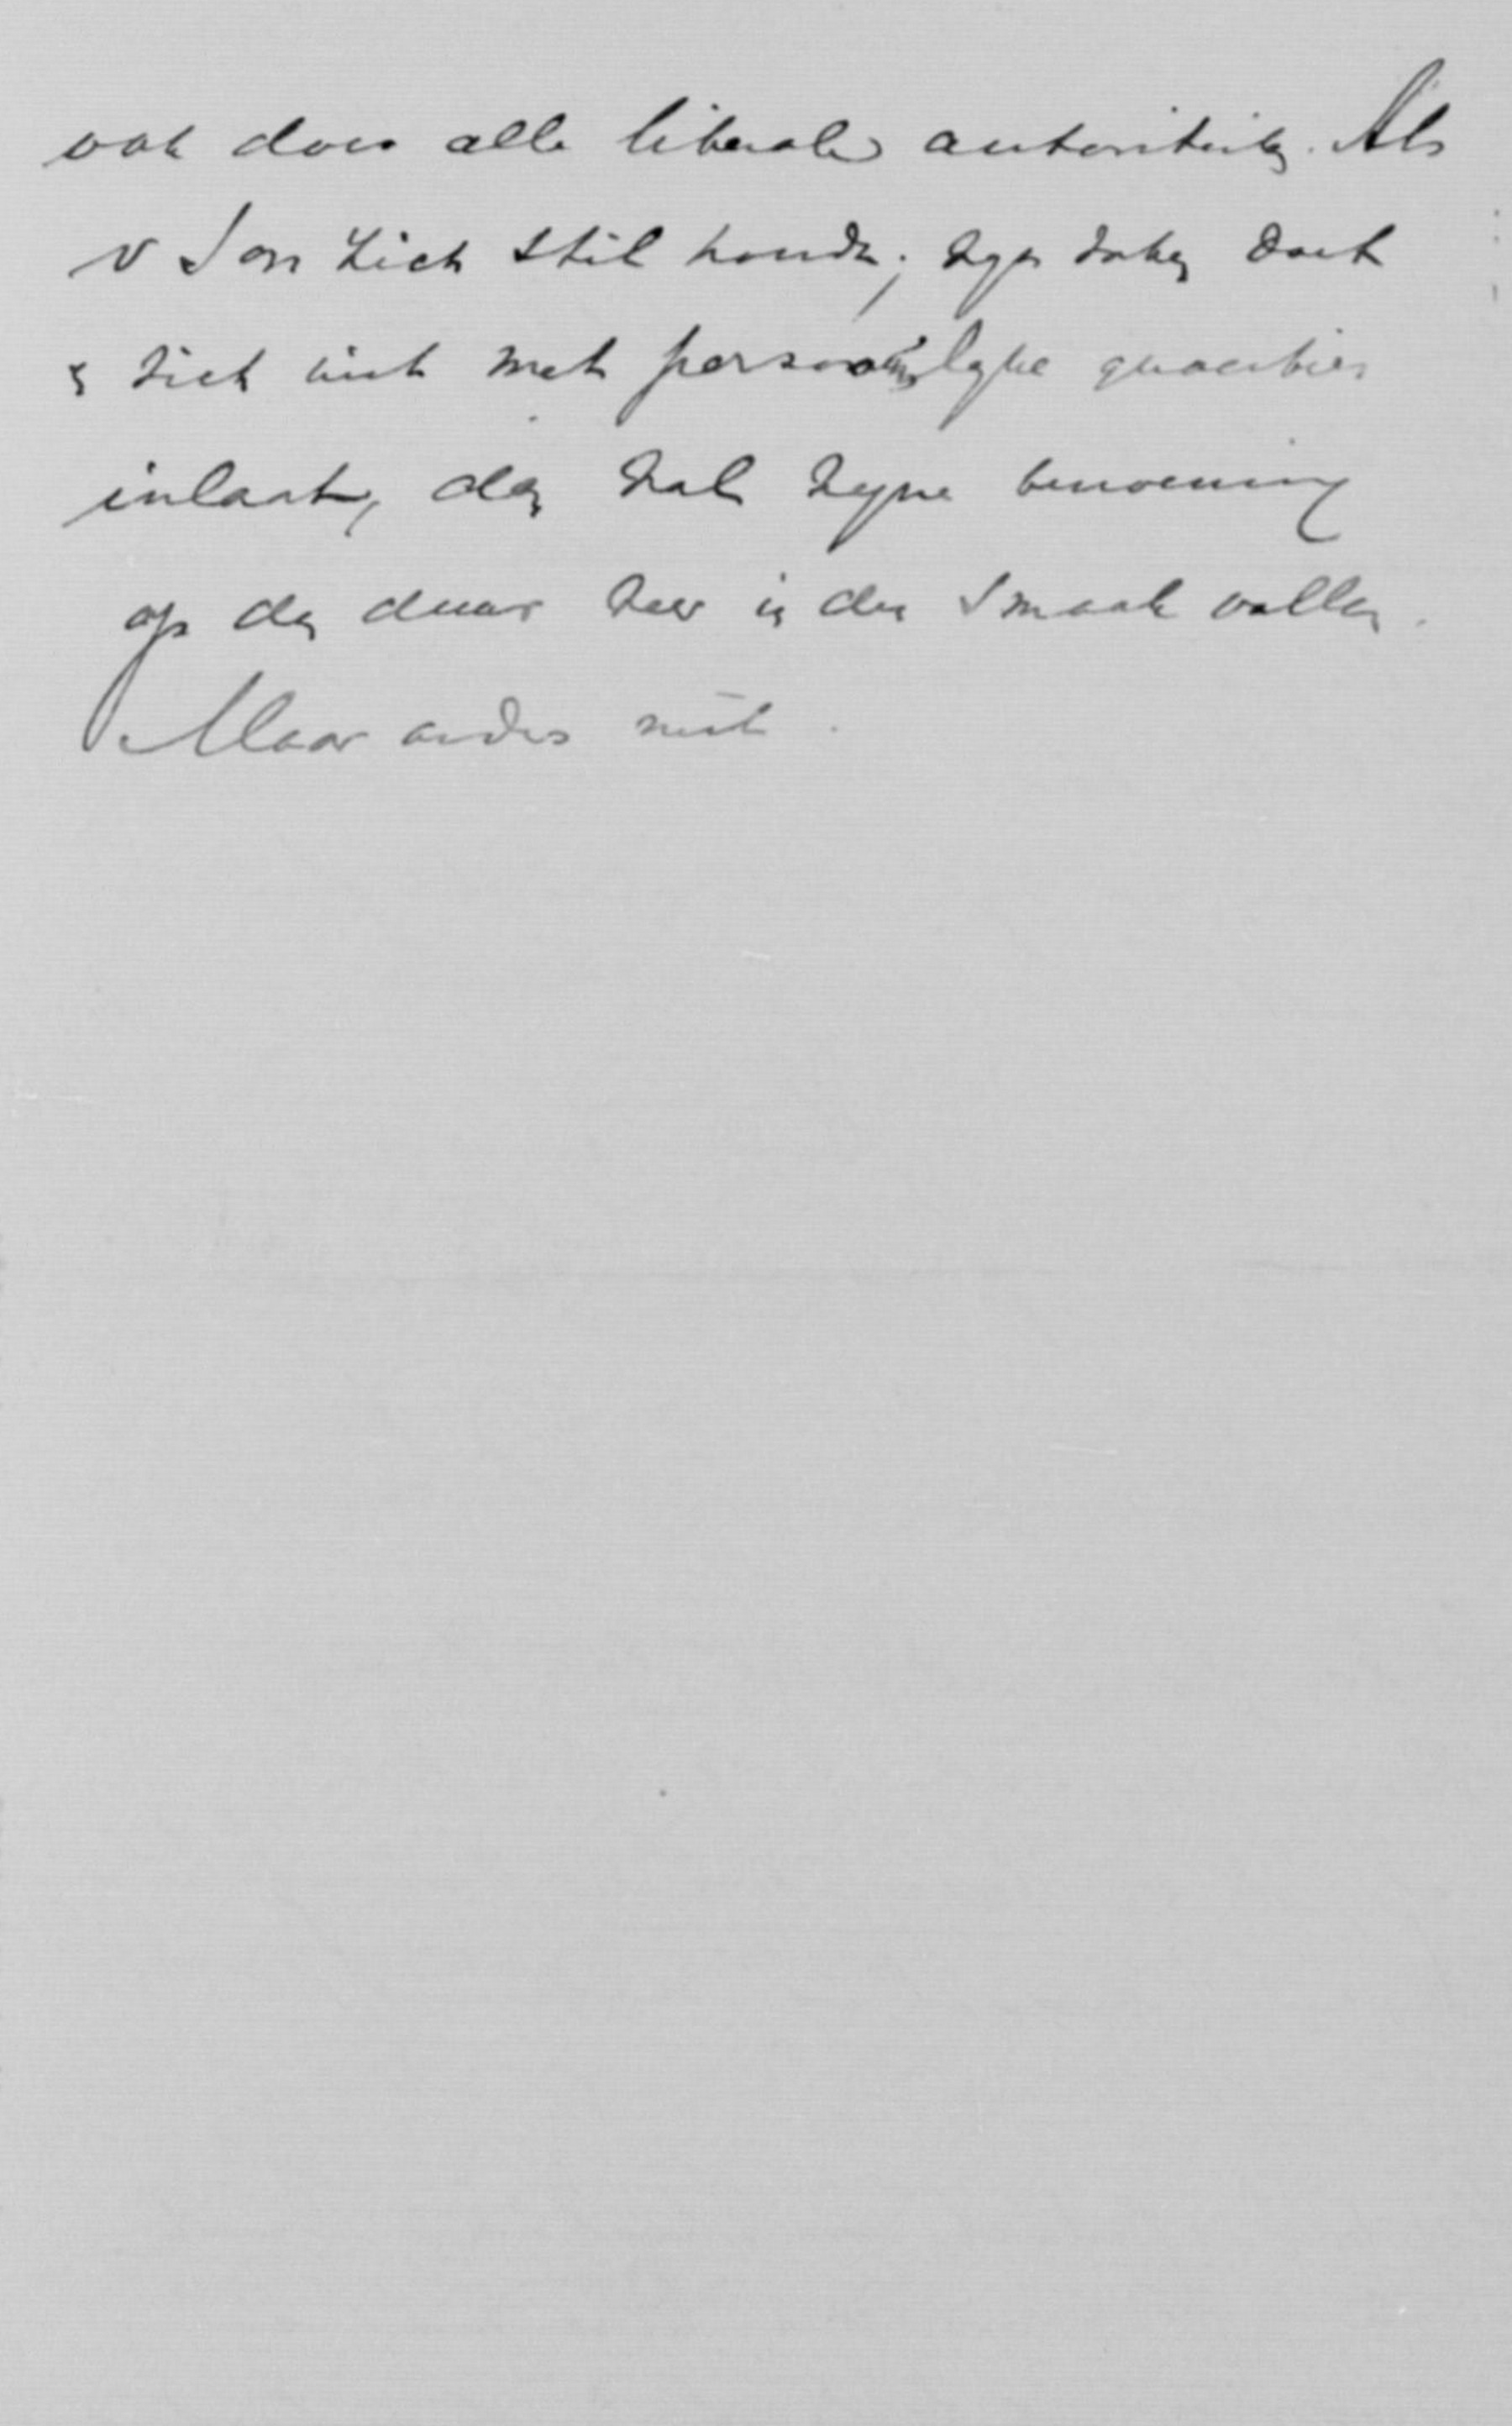 ook door alle liberale autoriteiten. Als
v Son zich stil houdt, zijn zaken doet
en zich niet met persoonlijke quaesties
inlaat, dan zal zijne benoeming
op den duur zeer in den smaak vallen.
Maar anders niet.